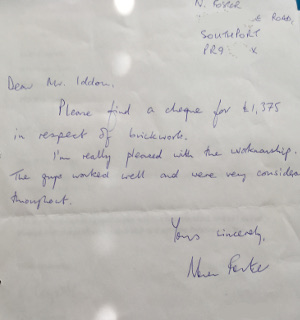 N.
ROAD,
SOUTHPORT
PR9
Dear Mr. Iddon,
Please find a cheque for £1,375
in respect of brickwork.
I'm really pleased with the workmanship.
The guys worked well and were very considera
throughout.
Yours sincerely,